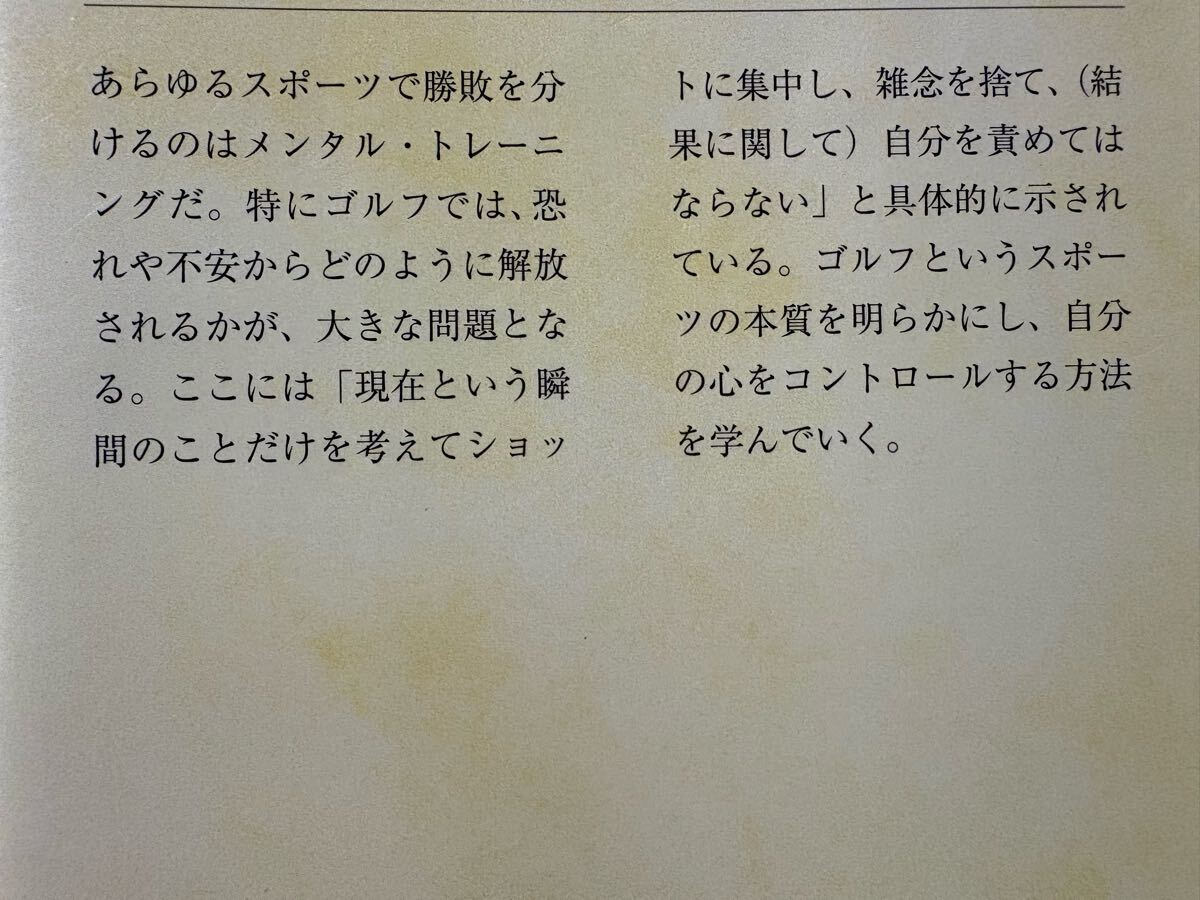 あらゆるスポーツで勝敗を分
けるのはメンタル・トレーニ
ングだ。特にゴルフでは、恐
れや不安からどのように解放
されるかが、大きな問題とな
る。ここには「現在という瞬
間のことだけを考えてショッ
トに集中し、雑念を捨て、（結
果に関して）自分を責めては
ならない」と具体的に示され
ている。ゴルフというスポー
ツの本質を明らかにし、自分
の心をコントロールする方法
を学んでいく。